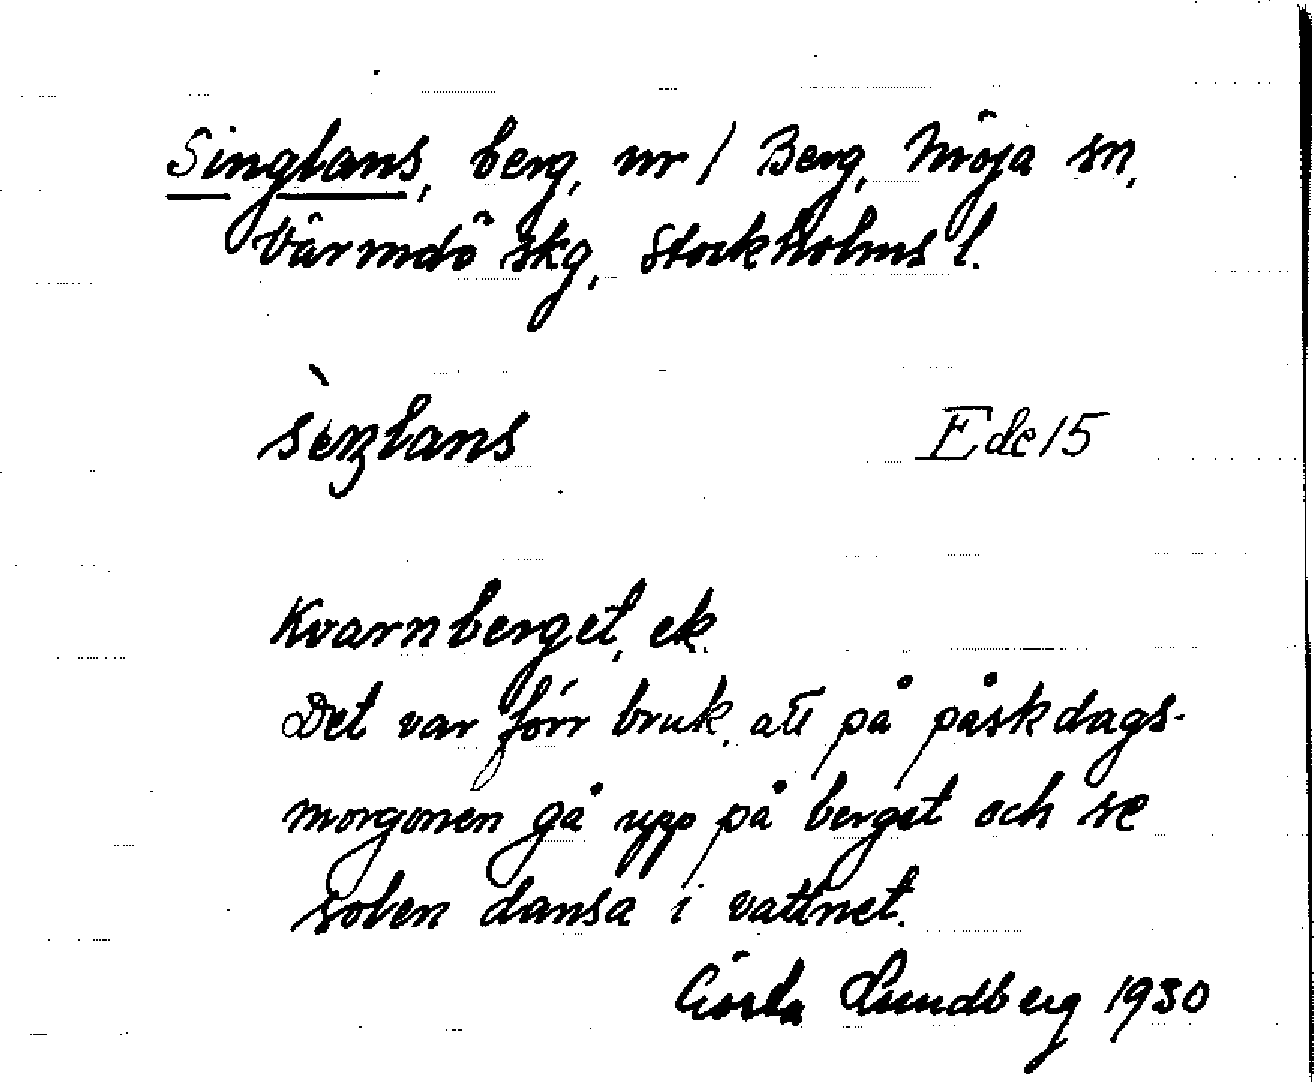 Singlans, berg, nr 1 Berg, Möja sn,
Värmdö skg, Stockholms l.
Ede 15
Kvarnberget, ek.
Det var förr bruk, att på påskdags-
morgonen gå upp på berget och se
solen dansa i vattnet.
Gösta Lundberg 1930